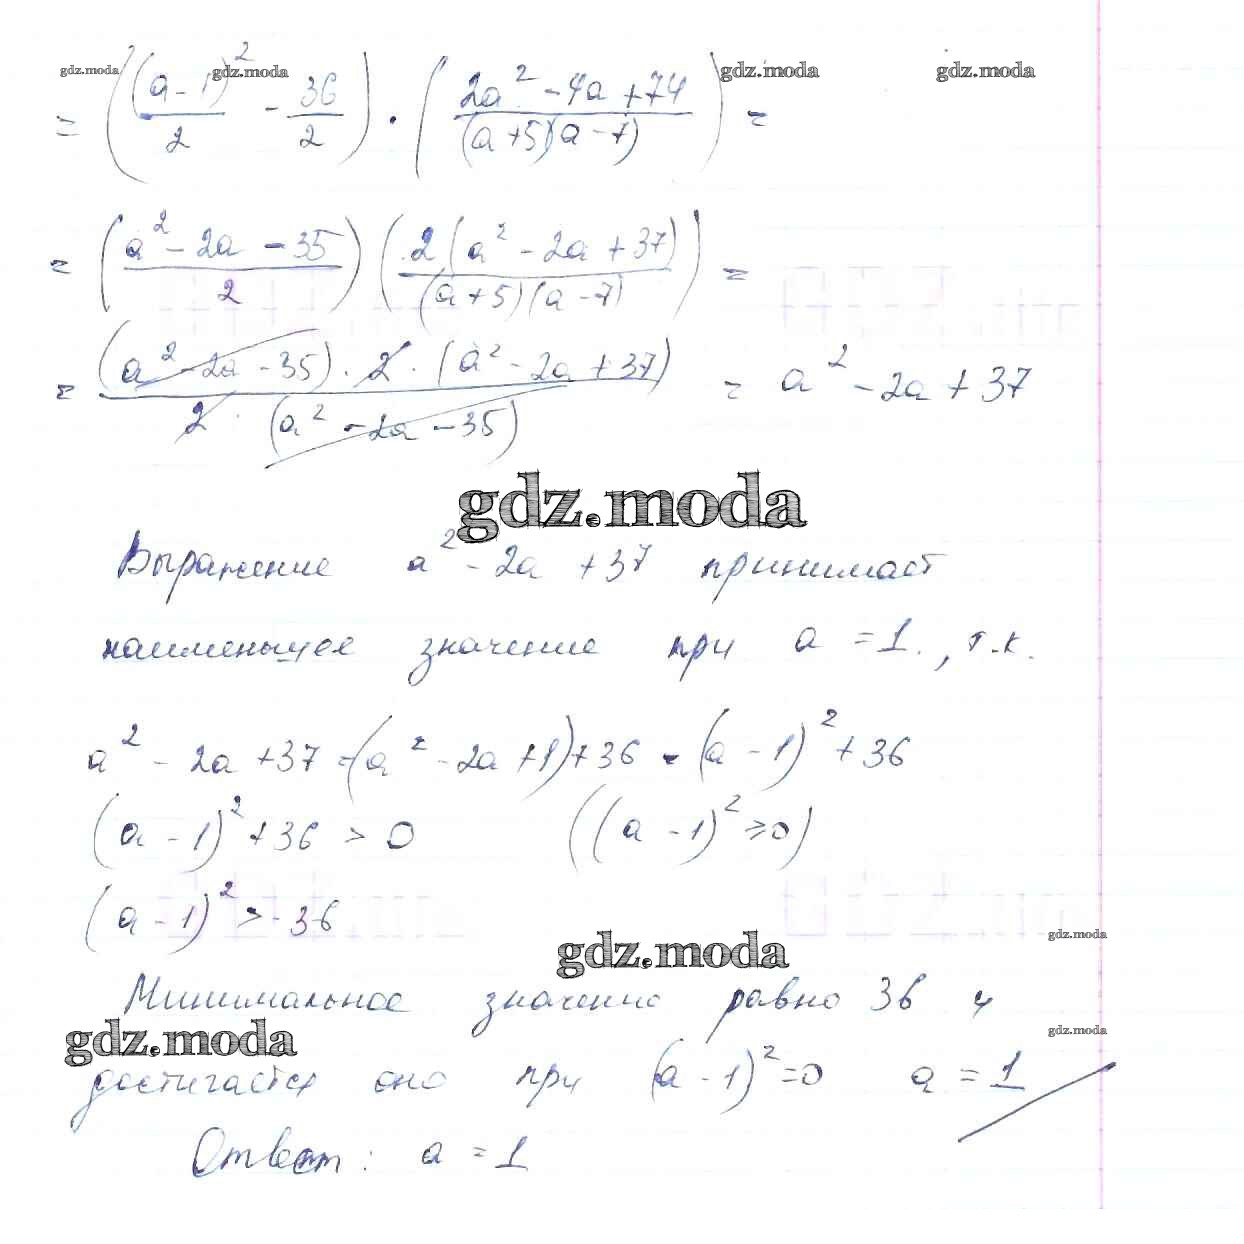 gdz.moda gdz.moda gdz.moda gdz.moda
= ((a-1)²/2 - 36/2) · (2a² - 4a + 74/(a+5)(a-7)) =
= (a² - 2a - 35/2) (2(a² - 2a + 37)/(a+5)(a-7)) =
= (a² - 2a - 35) · 2 · (a² - 2a + 37)/2 · (a² - 2a - 35) = a² - 2a + 37
gdz.moda
Выражение a² - 2a + 37 принимает
наименьшее значение при a = 1., т.к.
a² - 2a + 37 = (a² - 2a + 1) + 36 = (a - 1)² + 36
(a - 1)² + 36 > 0 ((a - 1)² ⩾ 0)
(a - 1)² > -36
gdz.moda
gdz.moda
Минимальное значение равно 36 и
gdz.moda
gdz.moda
достигается оно при (a - 1)² = 0 a = 1
Ответ: a = 1